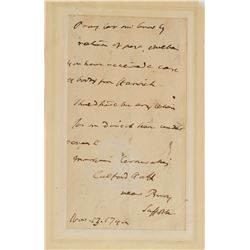 Pray let me know by
return of post, whether
you have received a case
of books from Harwich
Should there be any letters
for me direct them under
cover to
Marquis Cornwallis
Culford Hall
near Bury
Suffolk
Nov. 13. 179